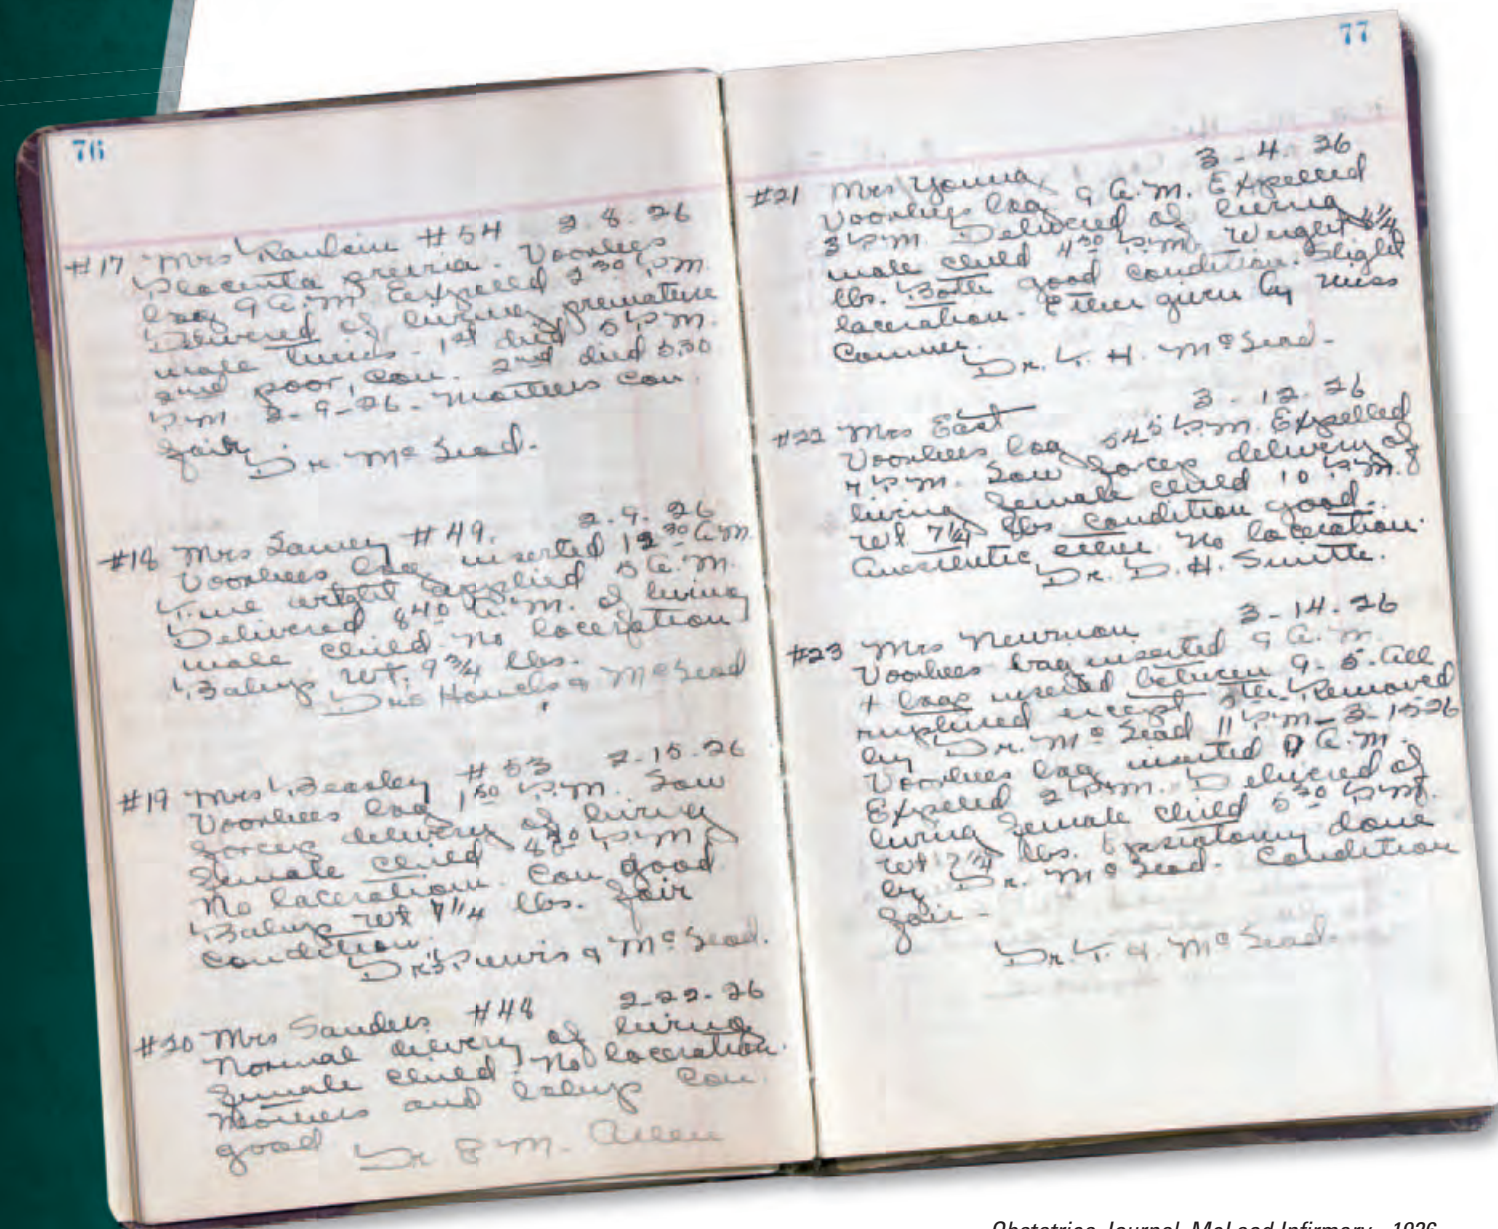 76
#17 Mrs Rankin #54 2.8.26
Placenta previa. Voorhees
bag 9 A.M. Expelled 2 30 P.M.
Delivered of living premature
male twins. 1st died 5 P.M.
2nd poor, con. 2nd died 5.30
P.M. 2-9-26. Mothers con.
fair.
Dr. McLeod.
#18 Mrs #49. 2.9.26
Voorhees bag inserted 12 30 A.M.
weight applied 5 A.M.
Delivered 8 40 A.M. of living
male child. No laceration
Babys wt. 9 3/4 lbs.
Drs & McLeod
#19 Mrs Beasley #53 2-15-26
Voorhees bag 1 50 P.M. Low
forcep delivery of living
female child P.M.
No laceration. Con good
Babys wt 7 1/4 lbs. fair
condition.
Drs. & McLeod.
#20 Mrs Sanders #48 2-22-26
Normal delivery of living
female child. No laceration.
Mothers and babys con.
good Dr E M. Allen
77
#21 Mrs Young 3-4-26
Voorhees bag 9 A.M. Expelled
3 P.M. Delivered of living
male child 4 30 P.M. Weight
lbs. Both good condition. Slight
laceration. Ether given by Miss
Dr. F. H. McLeod.
#22 Mrs East 3-12-26
Voorhees bag 5 45 P.M. Expelled
P.M. Low forcep delivery of
living female child 10 P.M.
wt 7 1/4 lbs condition good.
ether. No laceration.
Dr. D. H. Smith.
#23 Mrs Newman 3-14-26
Voorhees bag inserted 9 A.M.
4 bags inserted between 9-5. All
ruptured except Removed
by Dr. McLeod 11 P.M. 3-15-26
Voorhees bag inserted A.M.
Expelled 2 P.M. Delivered of
living female child 5 30 P.M.
wt 7 1/4 lbs. done
by Dr. McLeod. Condition
fair-
Dr. F. H. McLeod.
Obstetrics Journal, McLeod Infirmary - 1926